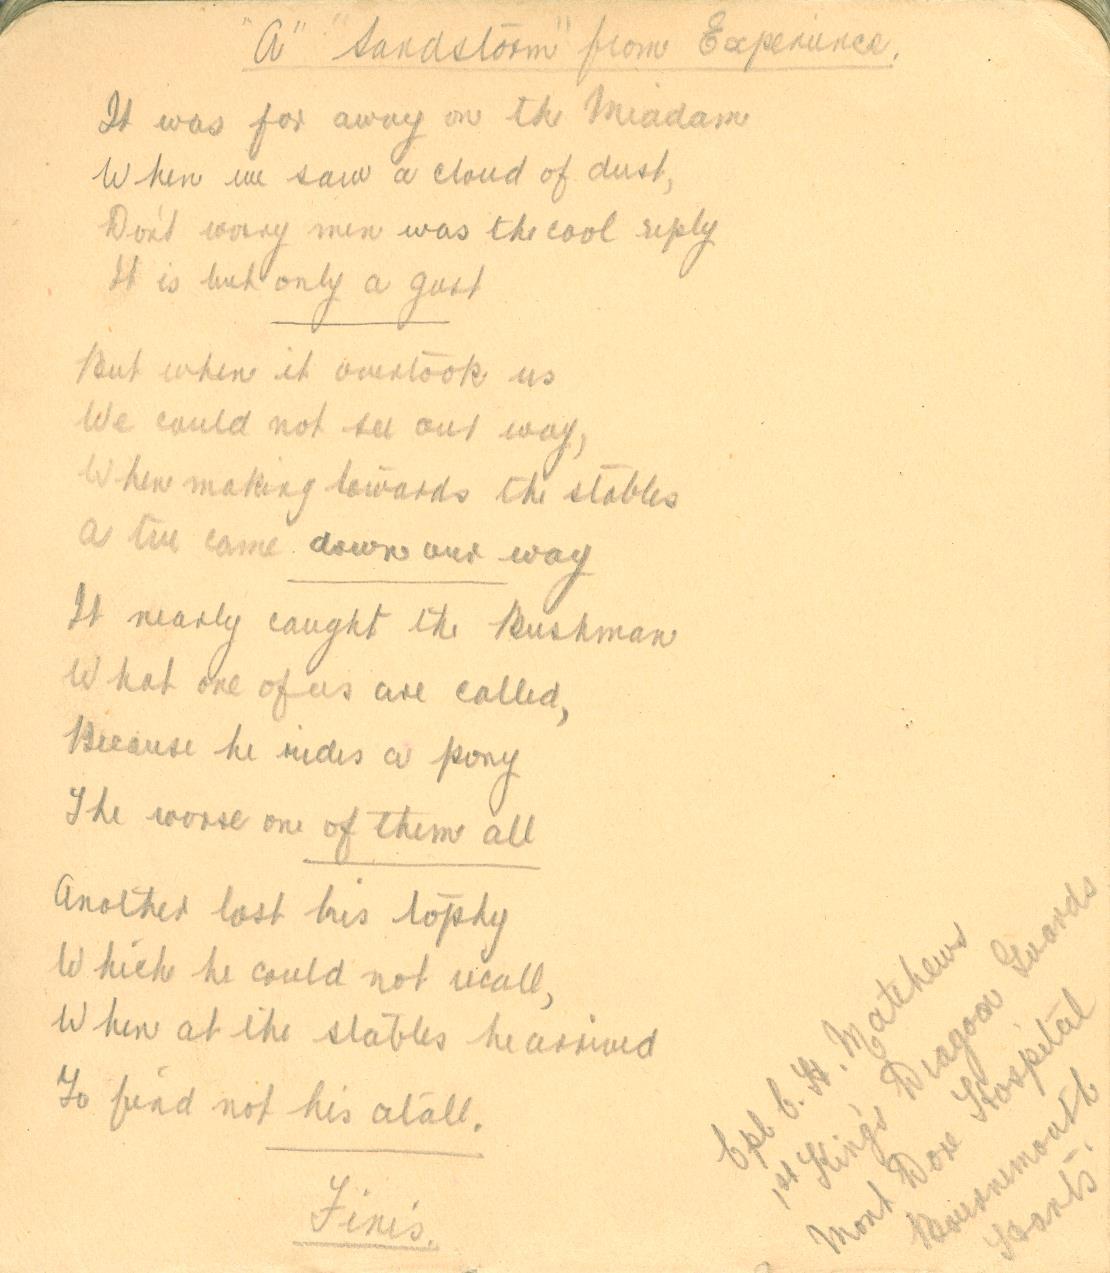 "A" "Sandstorm" from Experience.
It was far away on the Miadam
When we saw a cloud of dust,
Don't worry men was the cool reply
It is but only a gust
But when it overtook us
We could not see our way,
When making towards the stables
A tree came down our way
It nearly caught the Bushman
What one of us are called,
Because he rides a pony
The worse one of them all
Another lost his tophy
Which he could not recall,
When at the stables he arrived
To find not his atall.
Finis.
Cpl C. H. Matthews
1st King's Dragoon Guards
Mont Dore Hospital
Bournemouth
Hants.